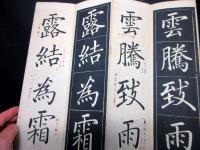 雲騰致雨
雲騰致雨
露結為霜
露結為霜